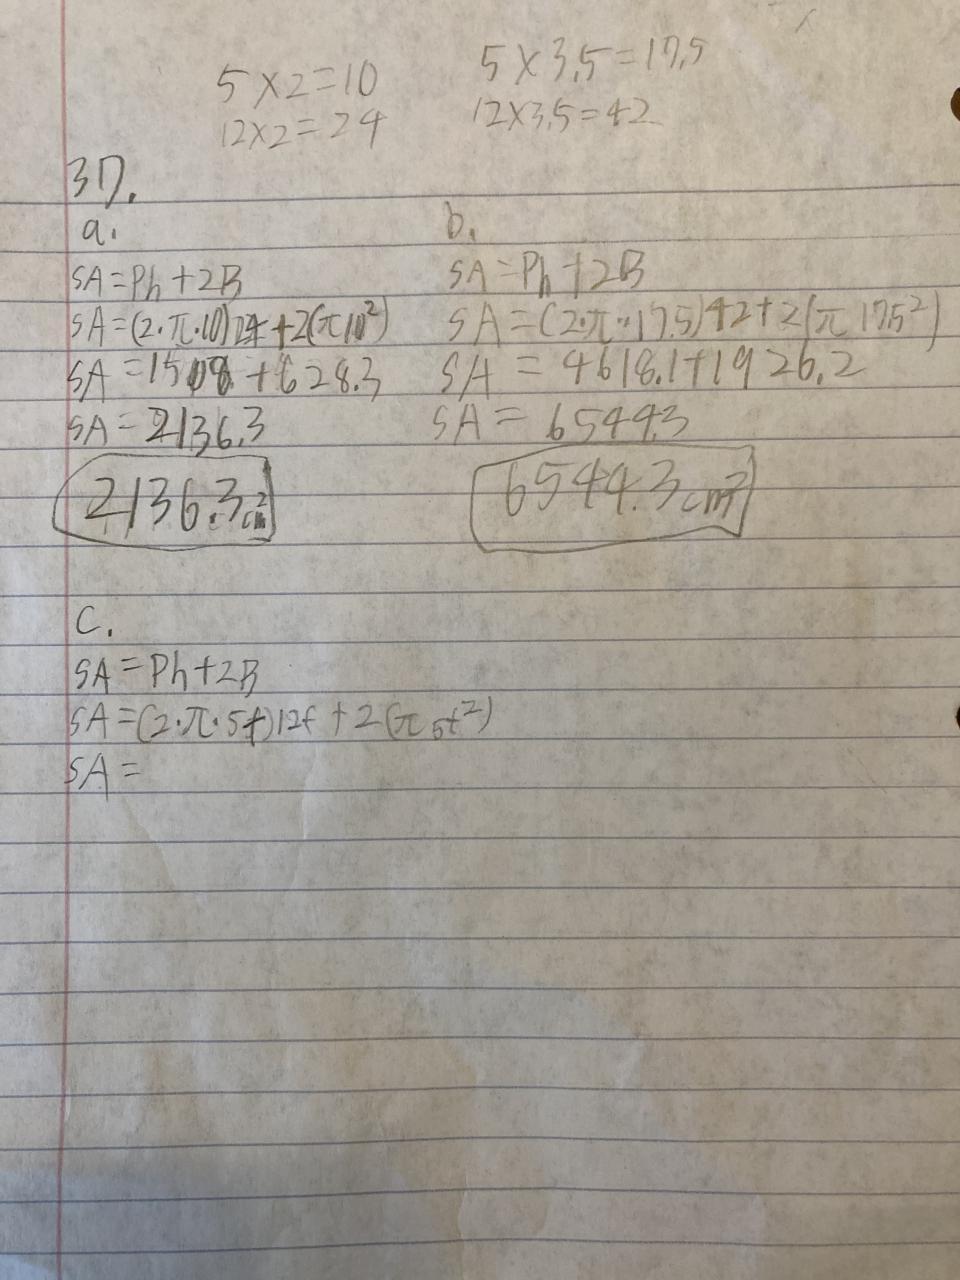 5×2=10
12×2=24
5×3.5=17.5
12×3.5=42
37.
a.
SA=Ph+2B
SA=(2·π·10)24+2(π10²)
SA=1508+628.3
SA=2136.3
2136.3cm²
b.
SA=Ph+2B
SA=(2·π·17.5)42+2(π17.5²)
SA=4618.1+1926.2
SA=6544.3
6544.3cm²
c.
SA=Ph+2B
SA=(2·π·5t)12t+2(π5t²)
SA=